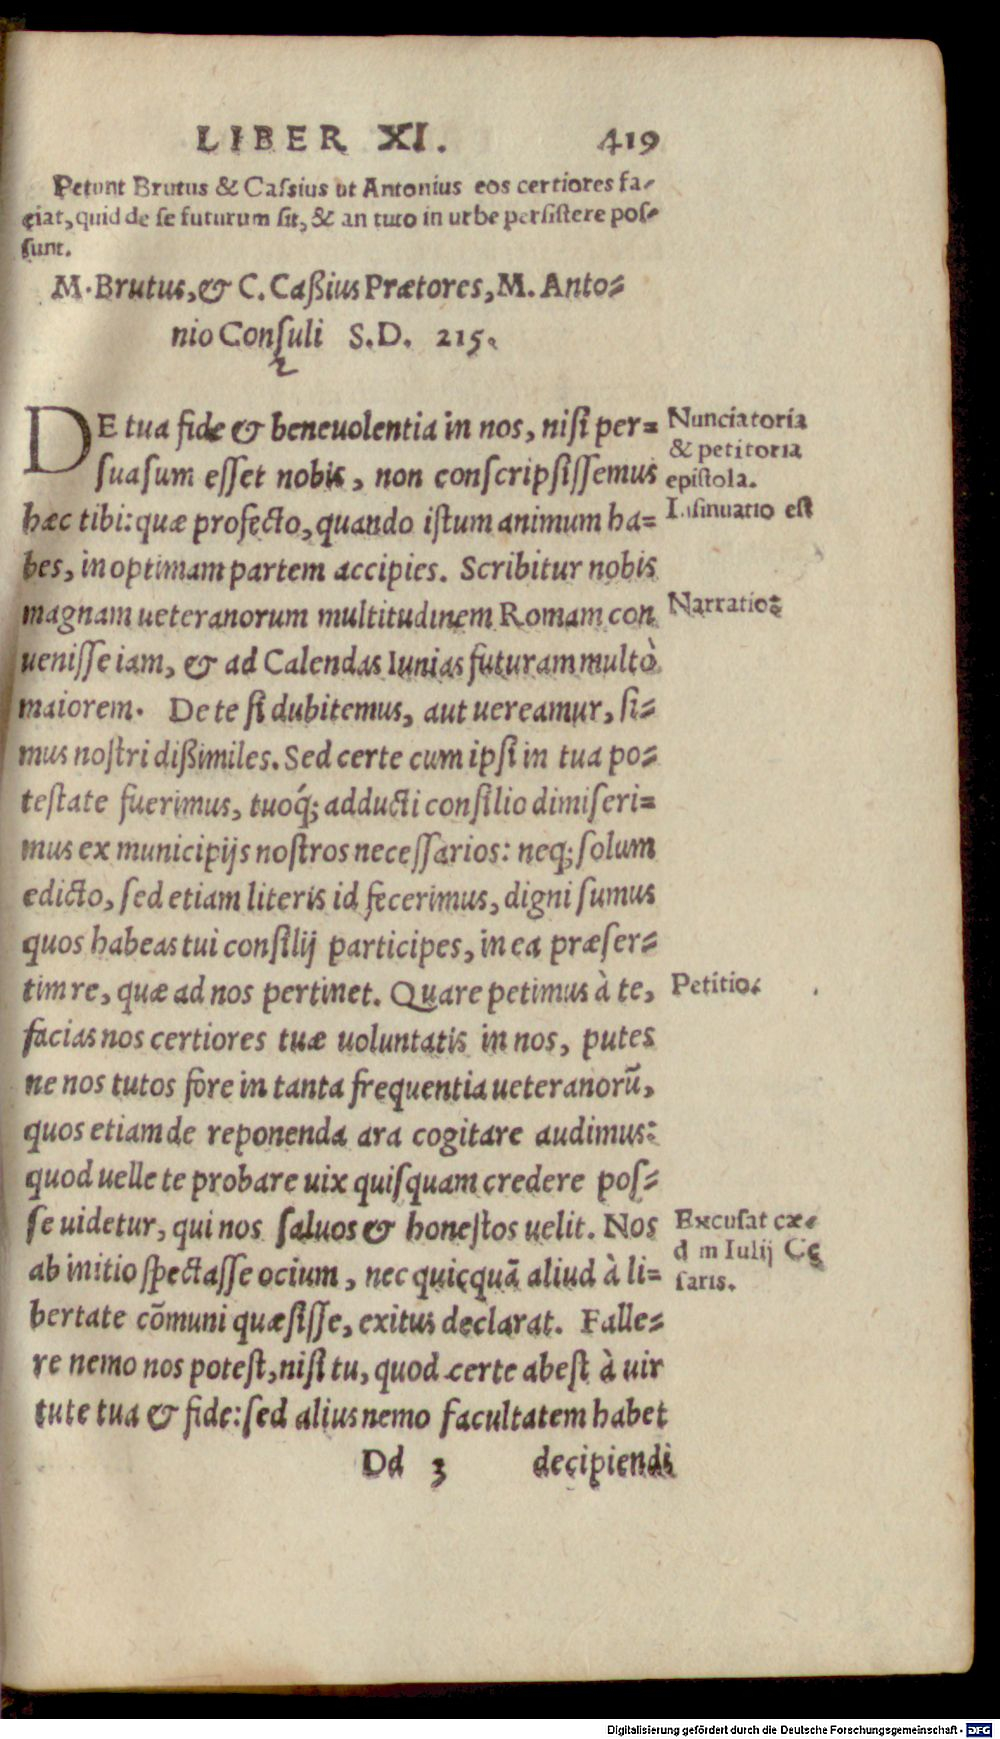 LIBER XI. 419
Petunt Brutus & Cassius ut Antonius eos certiores fa-
ciat, quid de se futurum sit, & an tuto in urbe persistere pos-
sunt.
M. Brutus, & C. Caßius Prætores, M. Anto-
nio Consuli S.D. 215.
2
DE tua fide & beneuolentia in nos, nisi per-
suasum esset nobis, non conscripsissemus
hæc tibi: quæ profecto, quando istum animum ha-
bes, in optimam partem accipies. Scribitur nobis
magnam ueteranorum multitudinem Romam con
uenisse iam, & ad Calendas Iunias futuram multò
maiorem. De te si dubitemus, aut uereamur, si-
mus nostri dißimiles. Sed certe cum ipsi in tua po-
testate fuerimus, tuoq́; adducti consilio dimiseri-
mus ex municipijs nostros necessarios: neq; solum
edicto, sed etiam literis id fecerimus, digni sumus
quos habeas tui consilij participes, in ea præser-
tim re, quæ ad nos pertinet. Quare petimus à te,
facias nos certiores tuæ uoluntatis in nos, putes
ne nos tutos fore in tanta frequentia ueteranorū,
quos etiam de reponenda ara cogitare audimus:
quod uelle te probare uix quisquam credere pos-
se uidetur, qui nos saluos & honestos uelit. Nos
ab initio spectasse ocium, nec quicquā aliud à li-
bertate cōmuni quæsisse, exitus declarat. Falle-
re nemo nos potest, nisi tu, quod certe abest à uir
tute tua & fide: sed alius nemo facultatem habet
Dd 3 decipiendi
Nunciatoria
& petitoria
epistola.
Insinuatio est
Narratio:
Petitio.
Excusat cæ-
dem Iulij Cę
saris.
Digitalisierung gefördert durch die Deutsche Forschungsgemeinschaft - DFG